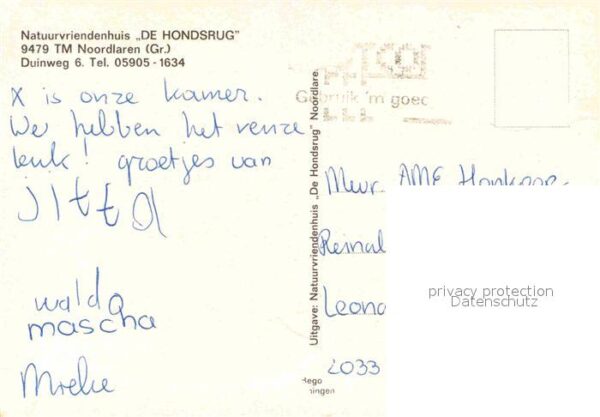 Natuurvriendenhuis „DE HONDSRUG"
9479 TM Noordlaren (Gr.)
Duinweg 6. Tel. 05905-1634
X is onze kamer.
We hebben het reuze
leuk! groetjes van
Jitta
walda
mascha
Mieke
Uitgave: Natuurvriendenhuis "De Hondsrug" Noordlare
Gebruik 'm goed
Mevr. AME
Reinal
Leona
2033
privacy protection
Datenschutz
Rego
ningen